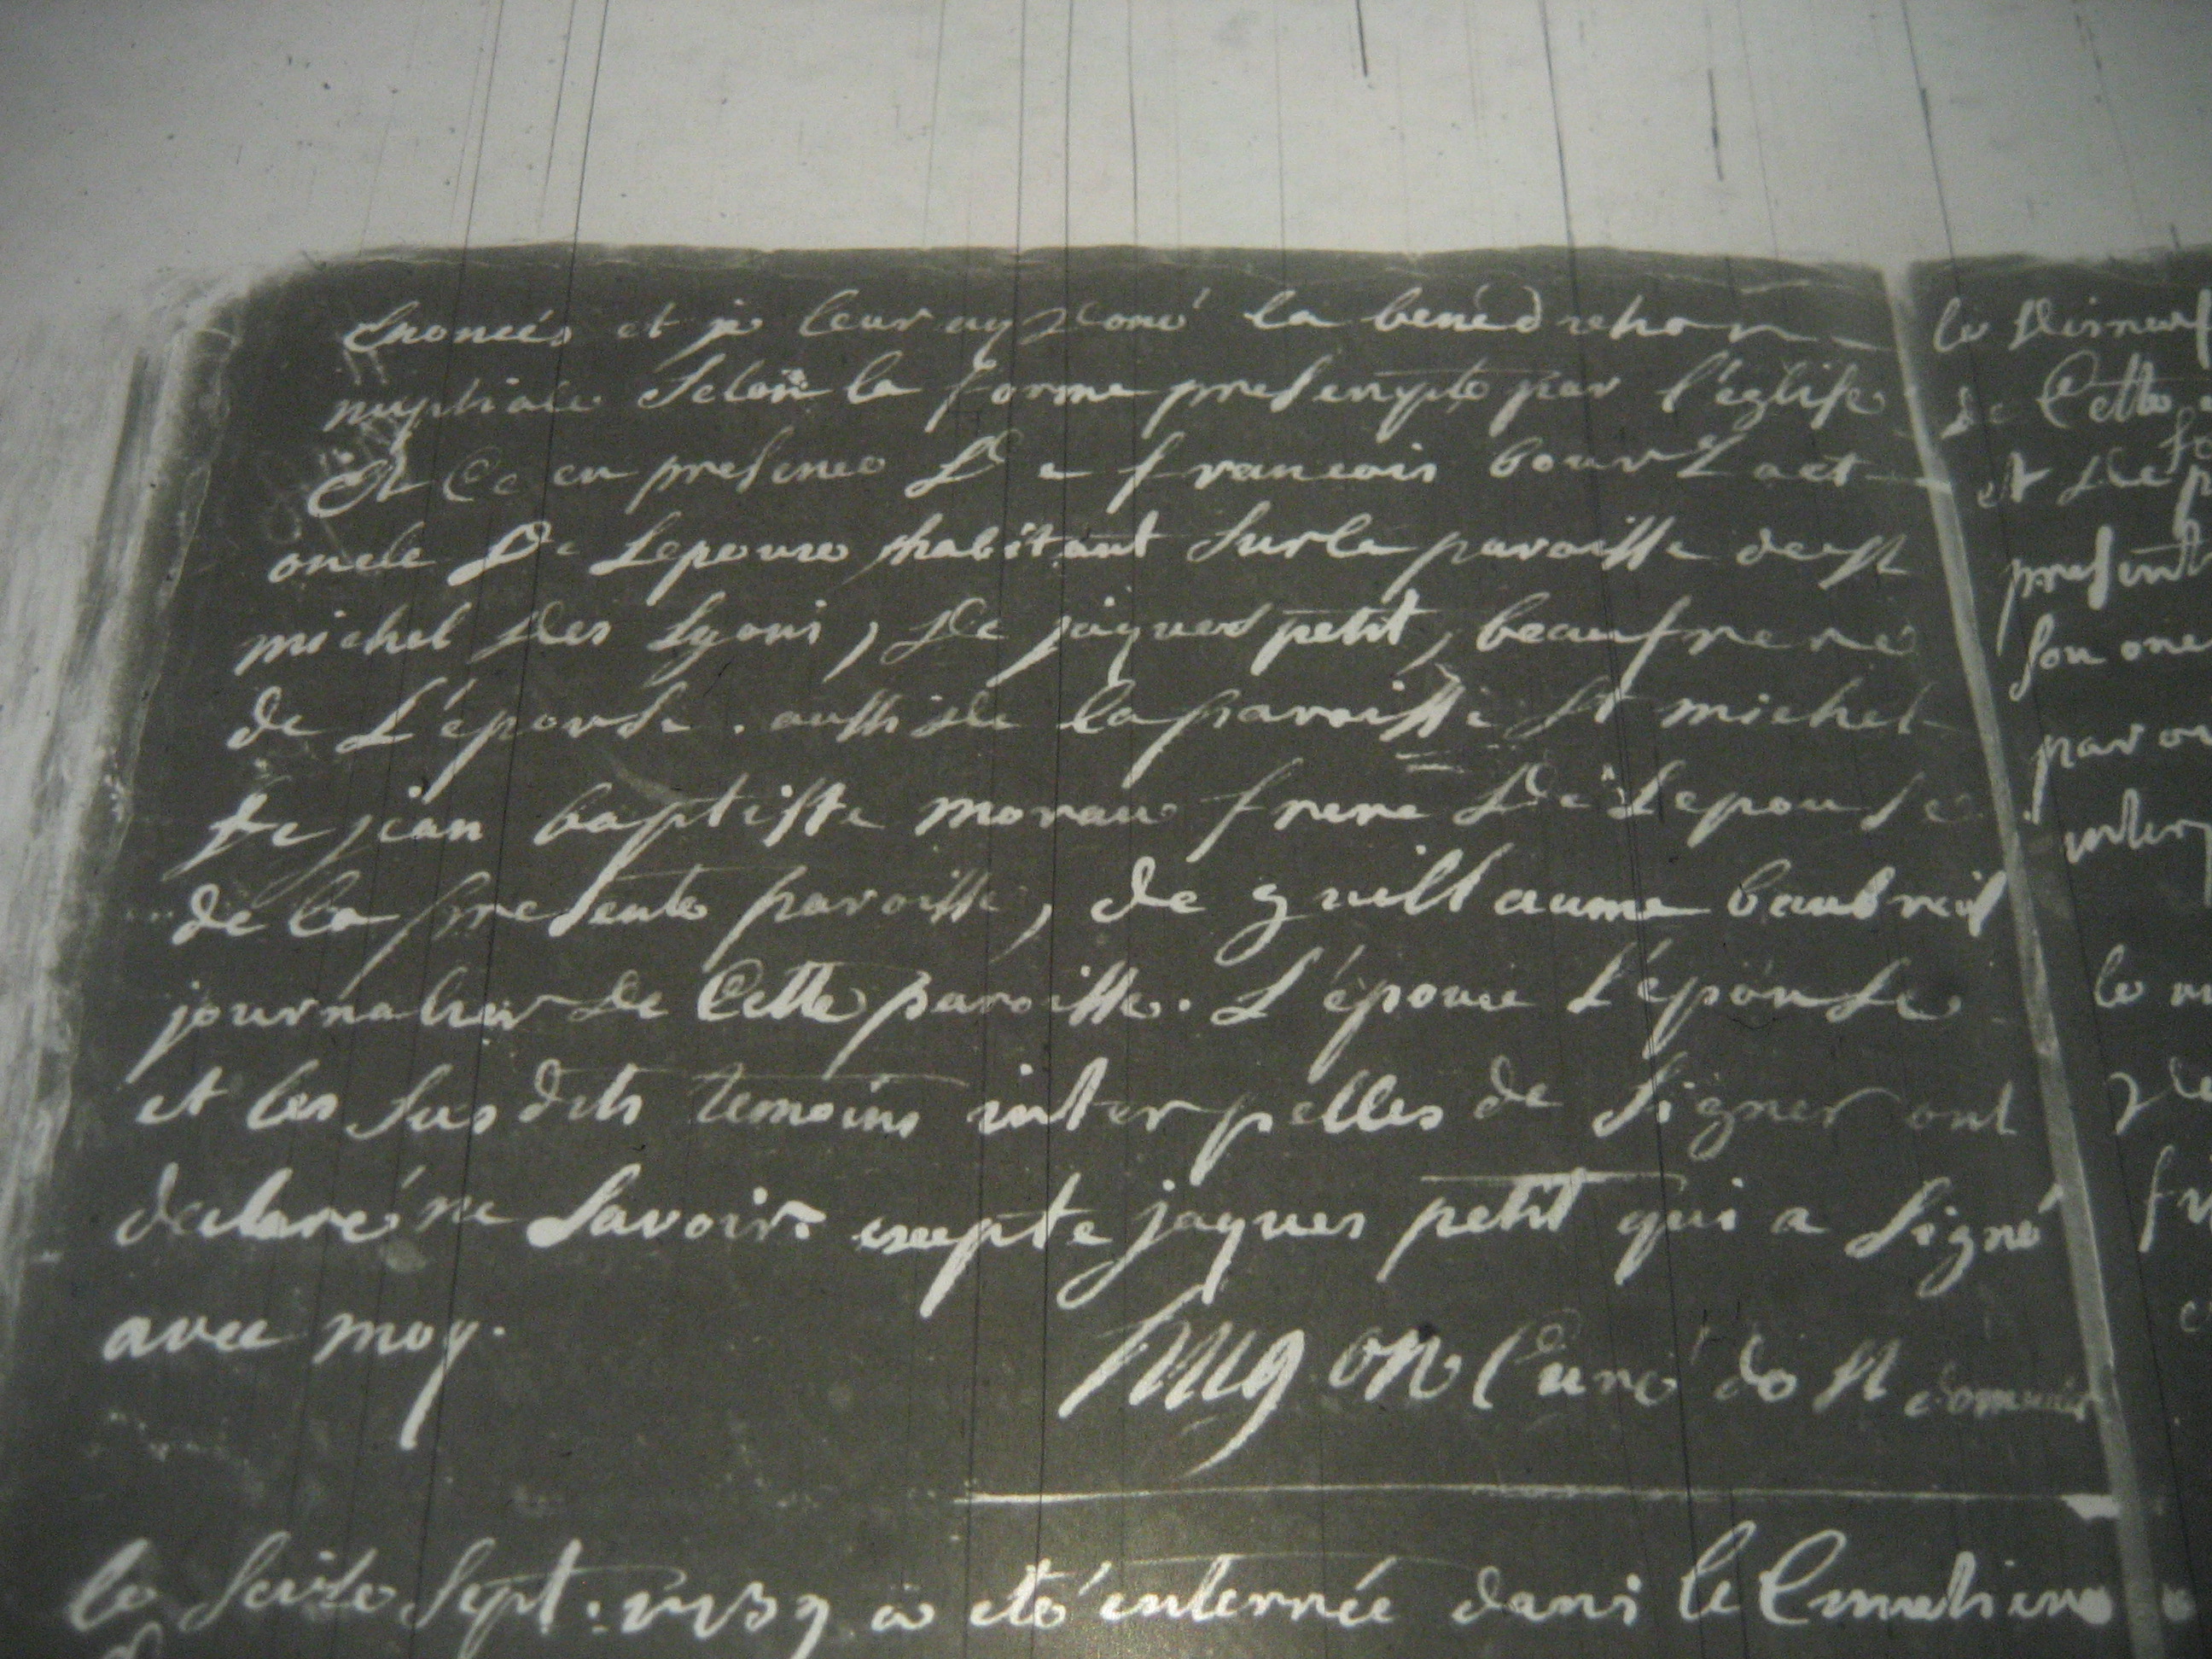 Enoncés et je leur ay doné la bénédiction
nuptiale Selon la forme prescrypte par l'église
Et Ce en presence De francois
oncle De Lepoux habitant Sur la paroisse de st
michel des Lyons, De jaques petit, beaufrere
de L'épouse. aussi de la paroisse St michel
de jean baptiste moreau frere De Lepouse
de la presente paroisse, de guillaume baubreil
journalier de Cette paroisse. L'époux L'épouse
et les Susdits temoins interpelles de Signer ont
declaré ne Savoir. excepte jaques petit qui a Signé
avec moy.
Curé de St
le Seize Sept. a eté enterrée dans le Cimetiere
le
de Cette
et De
present
son oncle